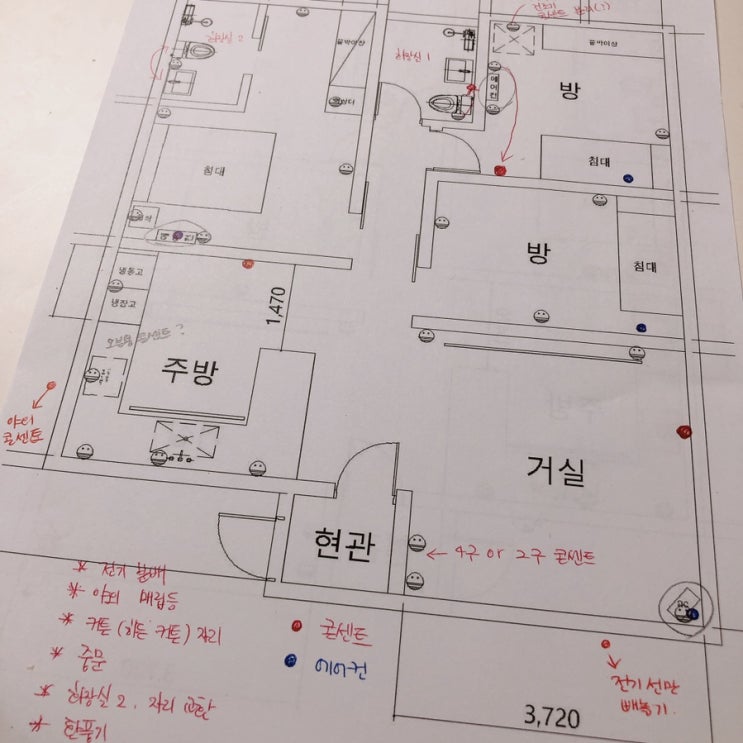 건조기
콘센트
화장실 2
붙박이장
화장실 1
에어컨
붙박이장
방
침대
침대
방
침대
에어컨
냉동고
냉장고
1,470
주방
야외
콘센트
거실
현관
4구 or 2구 콘센트
* 전기
* 야외 매립등
* 커튼 (히든 커튼) 자리
* 중문
* 화장실 2. 자리 교환
* 환풍기
콘센트
에어컨
전기 선만
빼놓기.
3,720